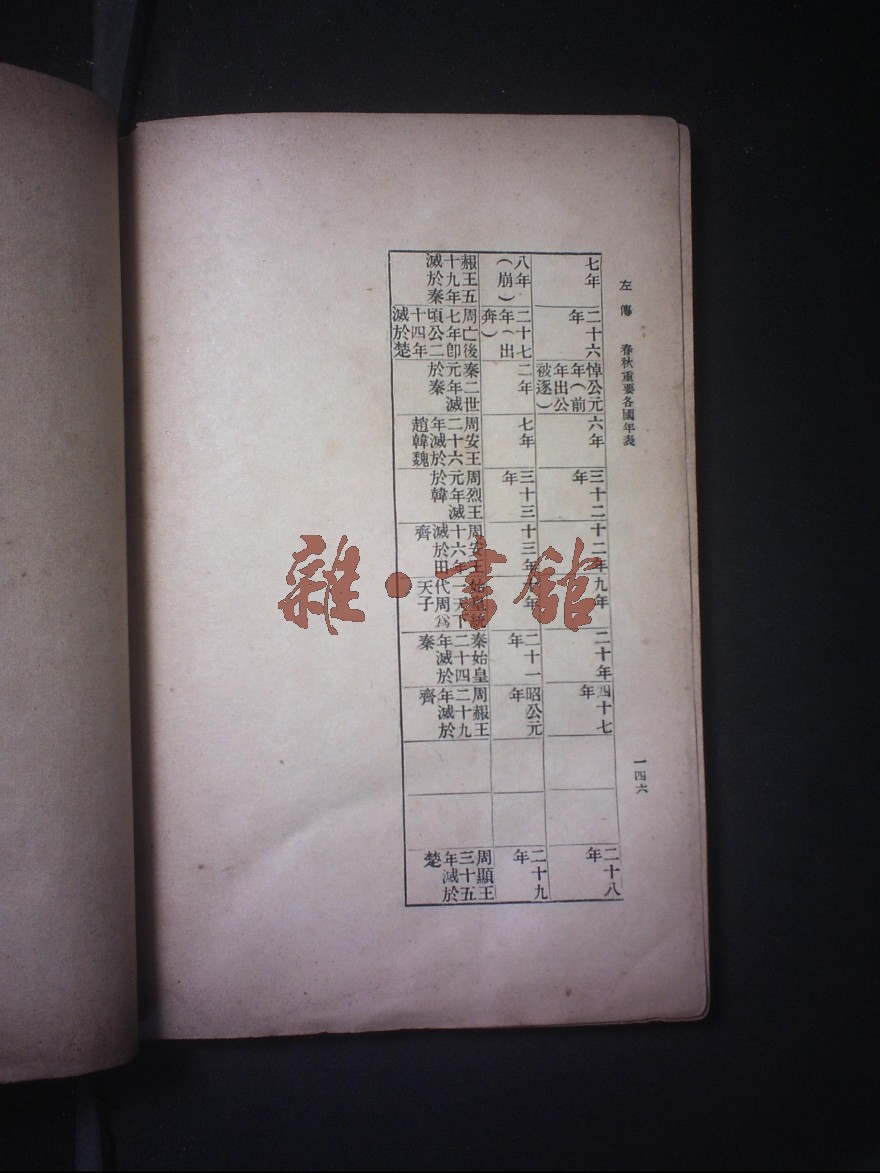 左傳 春秋重要各國年表
一四六
七年
二十六
年
悼公元
年(前
年出公
被逐)
六年
三十二
年
十二年
九年
二十年
四十七
年
二十八
年
八年
(崩)
二十七
年(出
奔)
二年
七年
三十三
年
十三年
十年
二十一
年
昭公元
年
二十九
年
赧王五
十九年
滅於秦
周亡後
七年卽
頃公二
十四年
滅於楚
秦二世
元年滅
於秦
周安王
二十六
年滅於
趙韓魏
周烈王
元年滅
於韓
周安王
十六年
滅於田
齊
始皇統
一天下
代周爲
天子
秦始皇
二十四
年滅於
秦
周赧王
二十九
年滅於
齊
周顯王
三十五
年滅於
楚
雜·書館